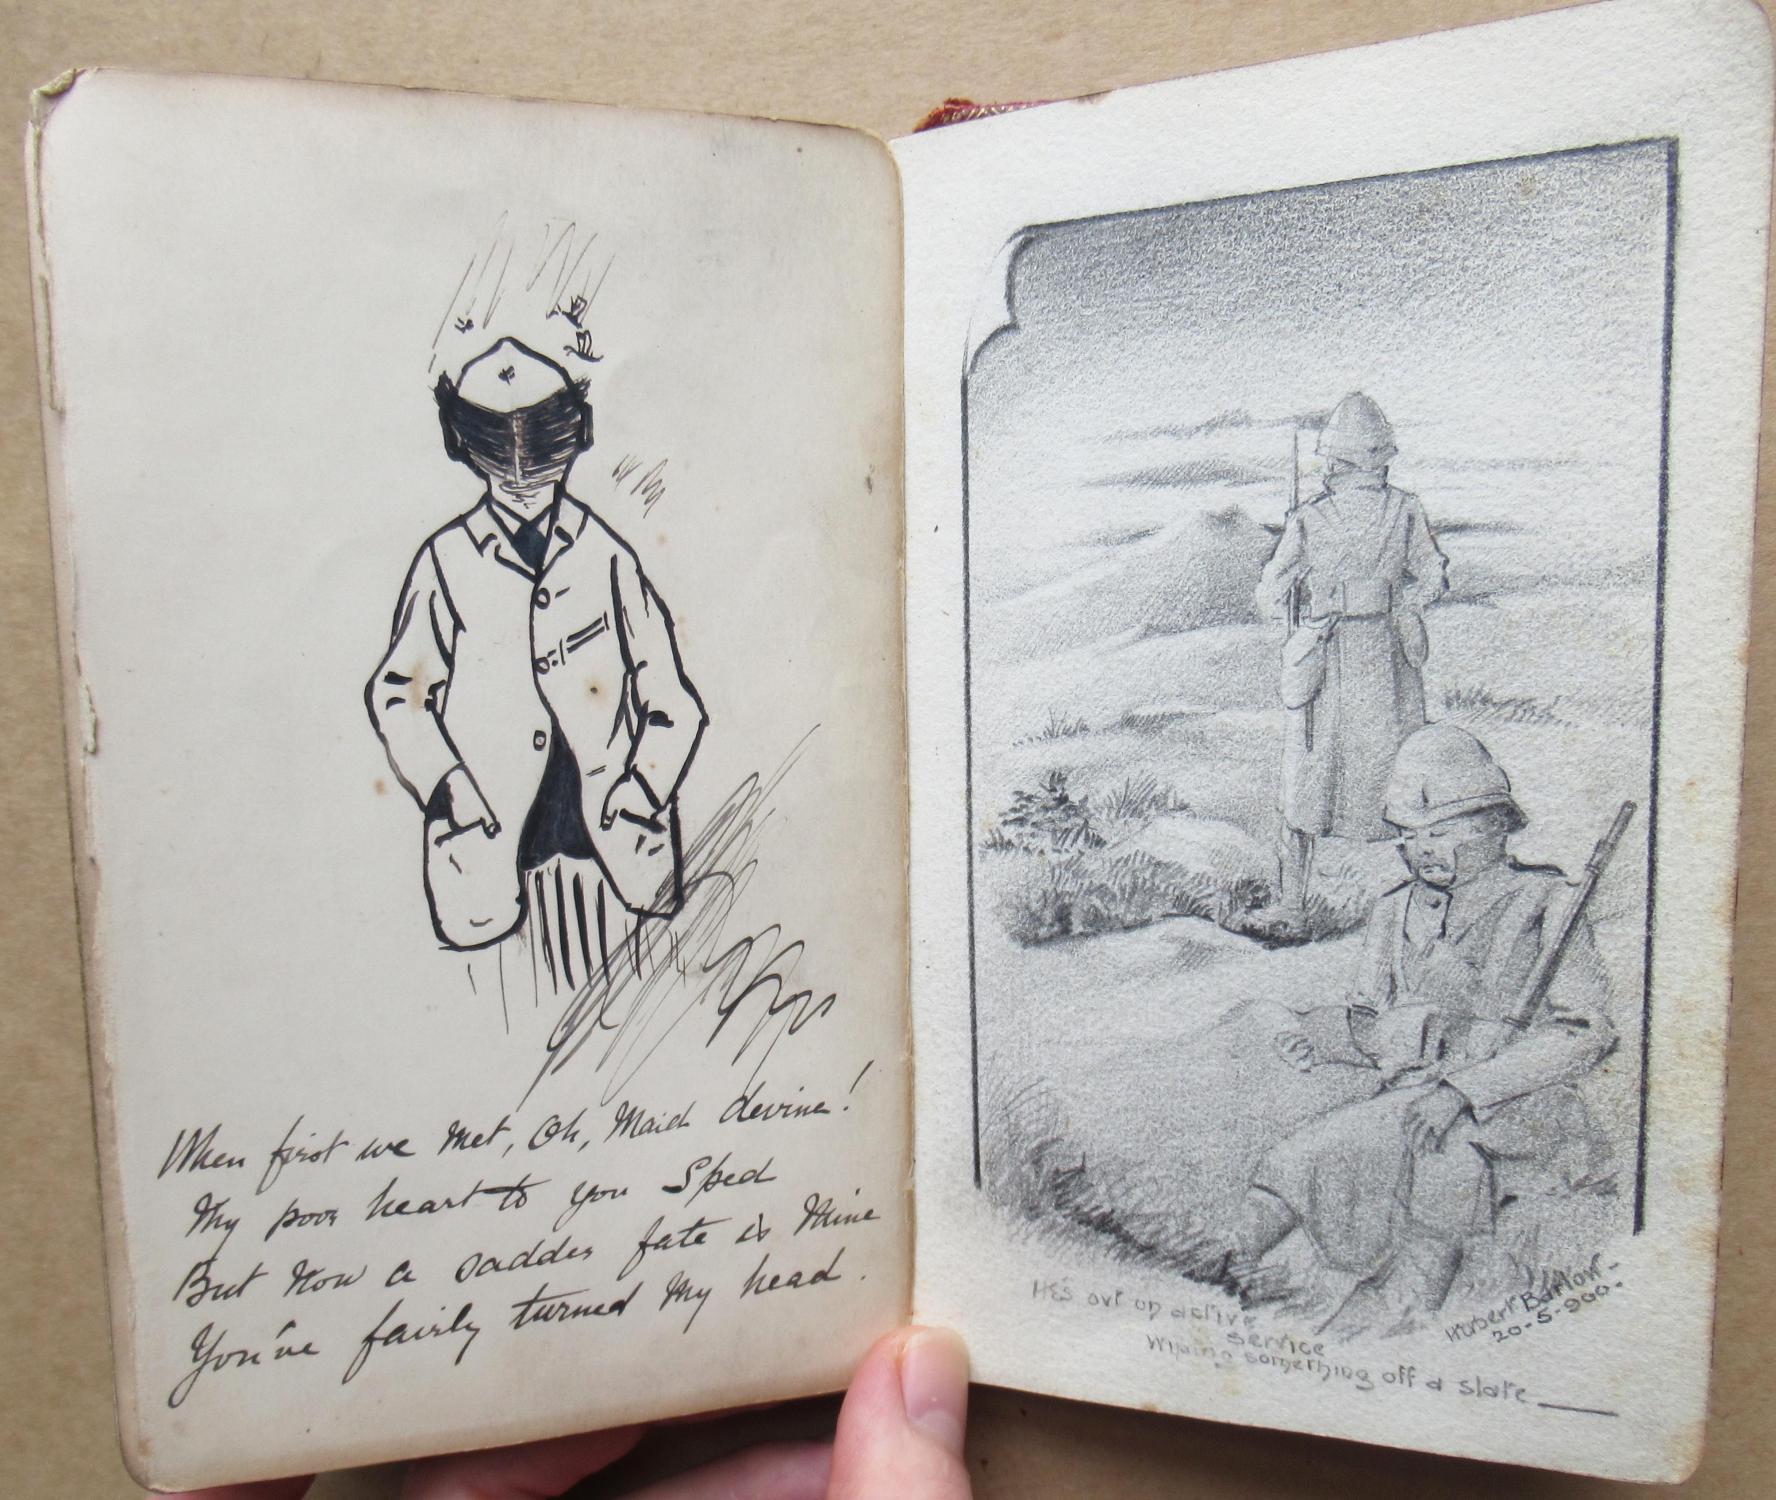 When first we Met, Oh, Maid devine!
My poor heart to you Sped
But Now a sadder fate is Mine
You've fairly turned My head.
He's out on active
service
Wiping something off a slate
Hubert Barlow-
20-5-900.